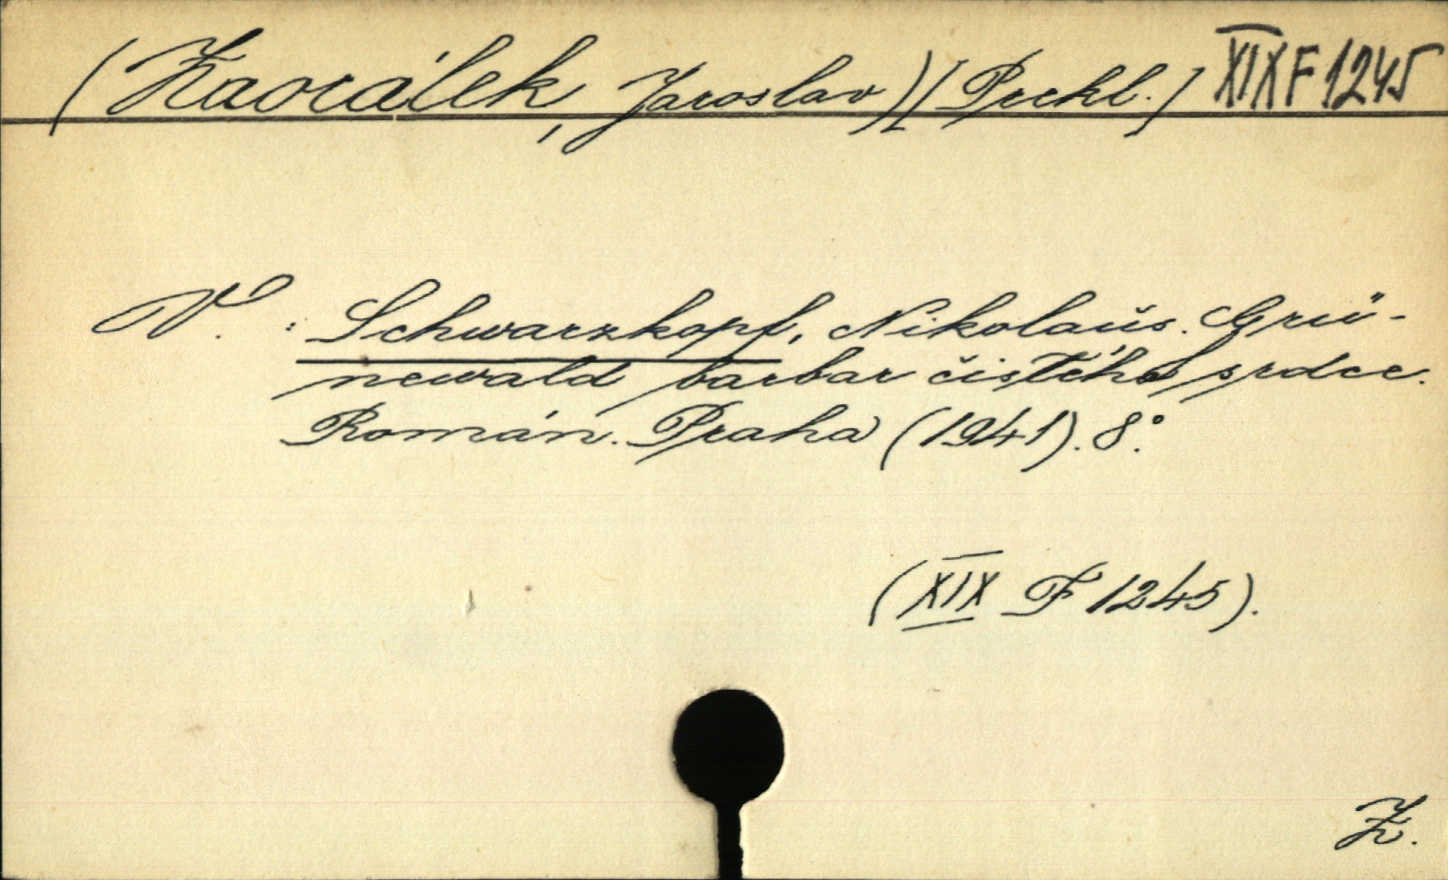 (Zaorálek, Jaroslav) [Překl.] XIX F 1245
V. : Schwarzkopf, Nikolaus. Grü-
newald barbar čistého srdce.
Román. Praha (1941). 8°.
(XIX F 1245).
Z.